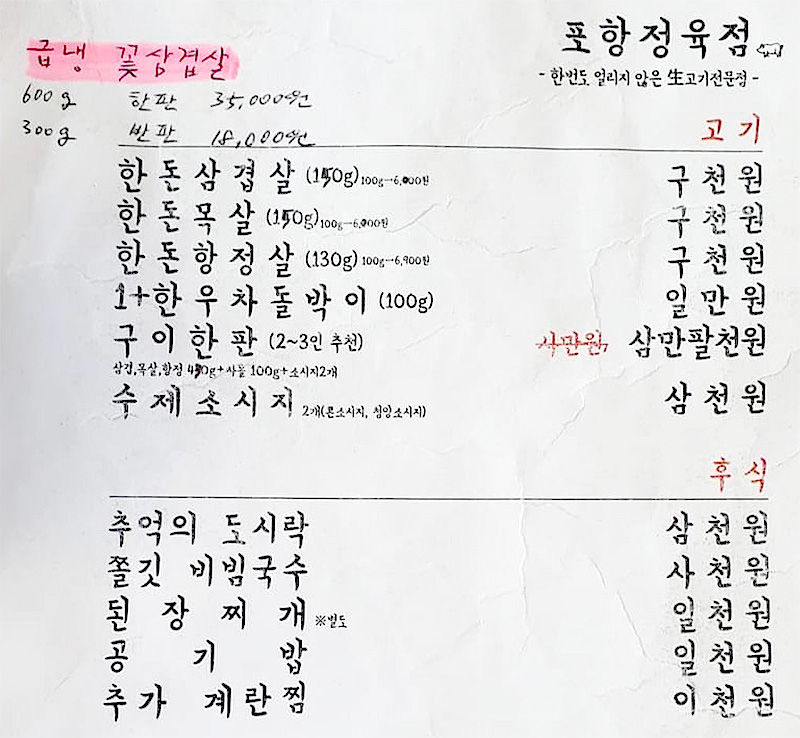 포항정육점
- 한번도 얼리지 않은 生고기전문점 -
급냉 꽃삼겹살
600g 한판 35,000원
300g 반판 18,000원
고기
한돈삼겹살 (150g) 100g→6,000원 구천원
한돈목살 (150g) 100g→6,000원 구천원
한돈항정살 (130g) 100g→6,900원 구천원
1+한우차돌박이 (100g) 일만원
구이한판 (2~3인 추천) 사만원, 삼만팔천원
삼겹,목살,항정 430g+사돌 100g+소시지2개
수제소시지 2개(콘소시지, 청양소시지) 삼천원
후식
추억의 도시락 삼천원
쫄깃 비빔국수 사천원
된장찌개 ※별도 일천원
공기밥 일천원
추가 계란찜 이천원